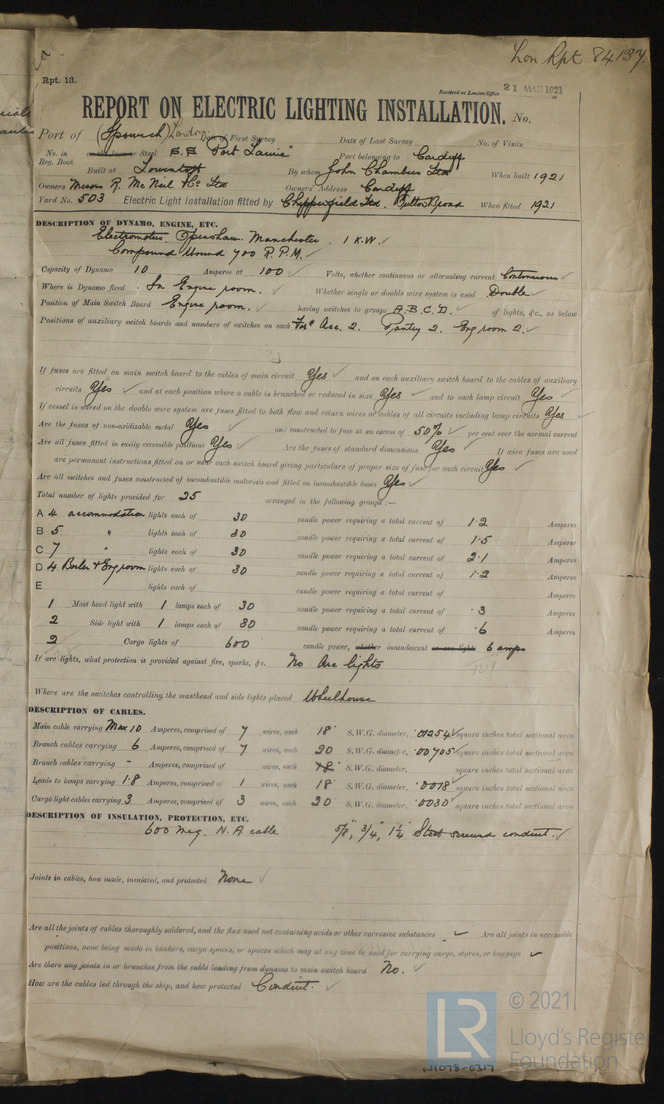 Lon Rpt 84137
Rpt. 13.
Received at London Office 21 MAR 1921
REPORT ON ELECTRIC LIGHTING INSTALLATION. No.
Port of (Ipswich) London Date of First Survey Date of Last Survey No. of Visits
No. in Reg. Book Steel S.S "Port Launie" Port belonging to Cardiff
Built at Lowestoft By whom John Chambers Ltd When built 1921
Owners Messrs R. McNeil & Co Ltd Owners' Address Cardiff
Yard No. 503 Electric Light Installation fitted by Chipperfield Ltd, Oulton Broad When fitted 1921
DESCRIPTION OF DYNAMO, ENGINE, ETC.
Electromotors, Openshaw, Manchester. 1 K.W.
Compound Wound 700 R.P.M.
Capacity of Dynamo 10 Amperes at 100 Volts, whether continuous or alternating current Continuous
Where is Dynamo fixed In Engine room. Whether single or double wire system is used Double
Position of Main Switch Board Engine room. having switches to groups A.B.C.D. of lights, &c., as below
Positions of auxiliary switch boards and numbers of switches on each Acc. 2. Pantry 2. Eng room 2.
If fuses are fitted on main switch board to the cables of main circuit Yes and on each auxiliary switch board to the cables of auxiliary
circuits Yes and at each position where a cable is branched or reduced in size Yes and to each lamp circuit Yes
If vessel is wired on the double wire system are fuses fitted to both flow and return wires or cables of all circuits including lamp circuits Yes
Are the fuses of non-oxidizable metal Yes and constructed to fuse at an excess of 50% per cent over the normal current
Are all fuses fitted in easily accessible positions Yes Are the fuses of standard dimensions Yes If wire fuses are used
are permanent instructions fitted on or near each switch board giving particulars of proper size of fuse for each circuit Yes
Are all switches and fuses constructed of incombustible materials and fitted on incombustible bases Yes
Total number of lights provided for 25 arranged in the following groups:—
A 4 accommodation lights each of 30 candle power requiring a total current of 1.2 Amperes
B 5 " lights each of 30 candle power requiring a total current of 1.5 Amperes
C 7 " lights each of 30 candle power requiring a total current of 2.1 Amperes
D 4 Boiler & Eng room lights each of 30 candle power requiring a total current of 1.2 Amperes
E lights each of candle power requiring a total current of Amperes
1 Mast head light with 1 lamps each of 30 candle power requiring a total current of .3 Amperes
2 Side light with 1 lamps each of 30 candle power requiring a total current of .6 Amperes
2 Cargo lights of 600 candle power, whether incandescent or arc lights 6 amps
If arc lights, what protection is provided against fire, sparks, &c. No Arc lights
Where are the switches controlling the masthead and side lights placed Wheelhouse
DESCRIPTION OF CABLES.
Main cable carrying Max 10 Amperes, comprised of 7 wires, each 18 S.W.G. diameter, .01254 square inches total sectional area
Branch cables carrying 6 Amperes, comprised of 7 wires, each 20 S.W.G. diameter, .00705 square inches total sectional area
Branch cables carrying - Amperes, comprised of wires, each 18 S.W.G. diameter, square inches total sectional area
Leads to lamps carrying 1.8 Amperes, comprised of 1 wires, each 18 S.W.G. diameter, .0018 square inches total sectional area
Cargo light cables carrying 3 Amperes, comprised of 3 wires, each 20 S.W.G. diameter, .0030 square inches total sectional area
DESCRIPTION OF INSULATION, PROTECTION, ETC.
600 Meg. N.A. cable 5/8", 3/4", 1 1/4 Steel screwed conduit.
Joints in cables, how made, insulated, and protected None
Are all the joints of cables thoroughly soldered, and the flux used not containing acids or other corrosive substances Are all joints in accessible
positions, none being made in bunkers, cargo spaces, or spaces which may at any time be used for carrying cargo, stores, or baggage
Are there any joints in or branches from the cable leading from dynamo to main switch board No.
How are the cables led through the ship, and how protected Conduit.
LR
© 2021
Lloyd's Register
Foundation
W1078-0317